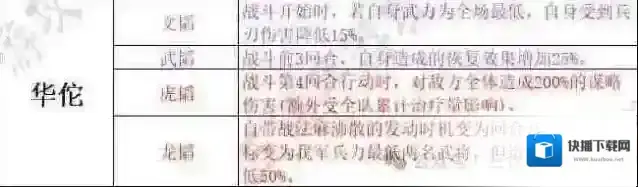 文韬
战斗开始时，若自身武力为全场最低，自身受到兵
刃伤害降低15%。
武韬
战斗前3回合，自身造成的恢复效果增加25%。
华佗
虎韬
战斗第4回合行动时，对敌方全体造成200%的谋略
伤害(额外受全队累计治疗量影响)、
龙韬
自带战法麻沸散的发动时机变为回合
标变为我军兵力最低两名武将，但
低50%。
快播下载网
www.kuaibo.com